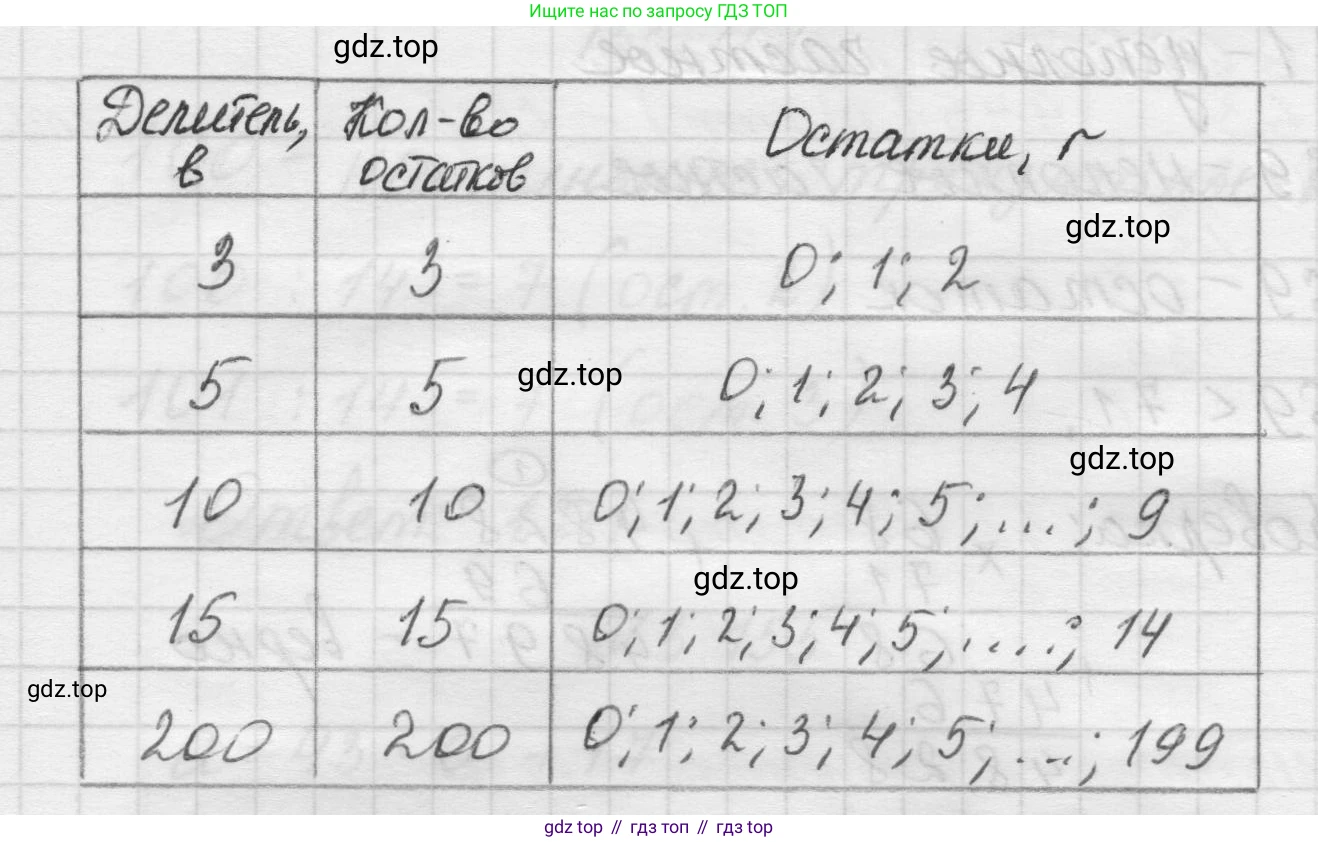 Ищите нас по запросу ГДЗ ТОП
gdz.top
Делитель, Кол-во Остатки, r
в остатков
gdz.top
3 3 0; 1; 2
gdz.top
5 5 0; 1; 2; 3; 4
gdz.top
10 10 0; 1; 2; 3; 4; 5; ...; 9
gdz.top
15 15 0; 1; 2; 3; 4; 5; ....; 14
gdz.top
200 200 0; 1; 2; 3; 4; 5; ...; 199
gdz top // гдз топ // gdz top